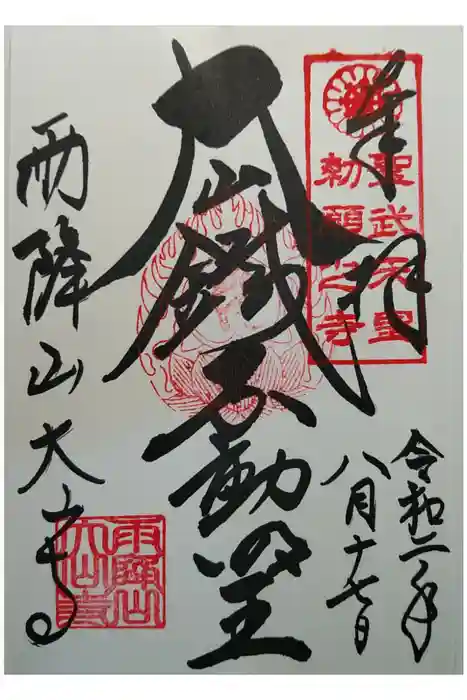 奉拝
聖武天皇
勅願之寺
大山鐵不動明王
令和二年
八月十七日
雨降山大山寺
雨降山
大山寺